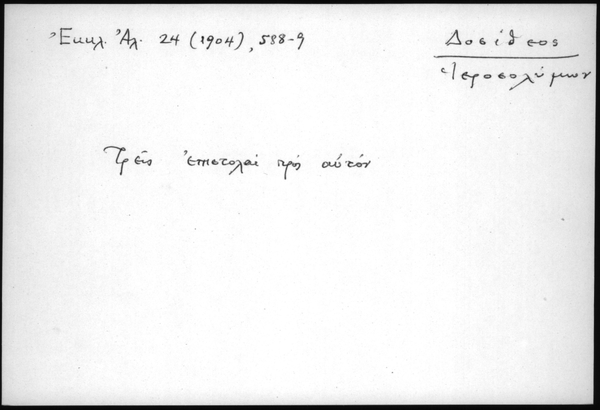 Ἐκκλ. Ἀλ. 24 (1904), 588-9
Δοσίθεος
Ἱεροσολύμων
Τρεῖς ἐπιστολαὶ πρὸς αὐτόν